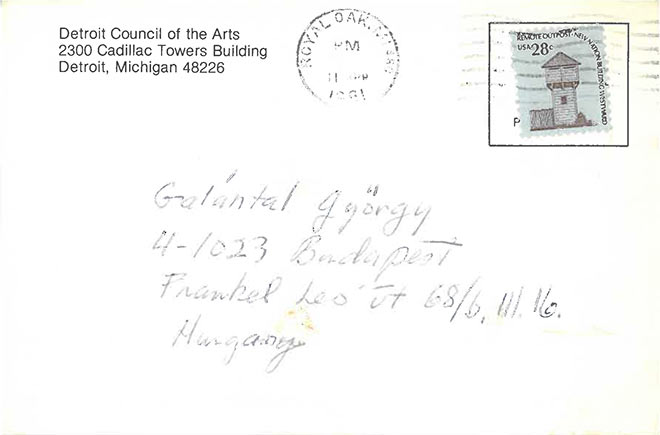 Detroit Council of the Arts
2300 Cadillac Towers Building
Detroit, Michigan 48226
ROYAL OAK,
PM
11
1981
REMOTE OUTPOST·NEW NATION BUILDING WESTWARD
USA 28c
P
Galántal György
4-1023 Budapest
Frankel Leó út 68/b. III. 16.
Hungary